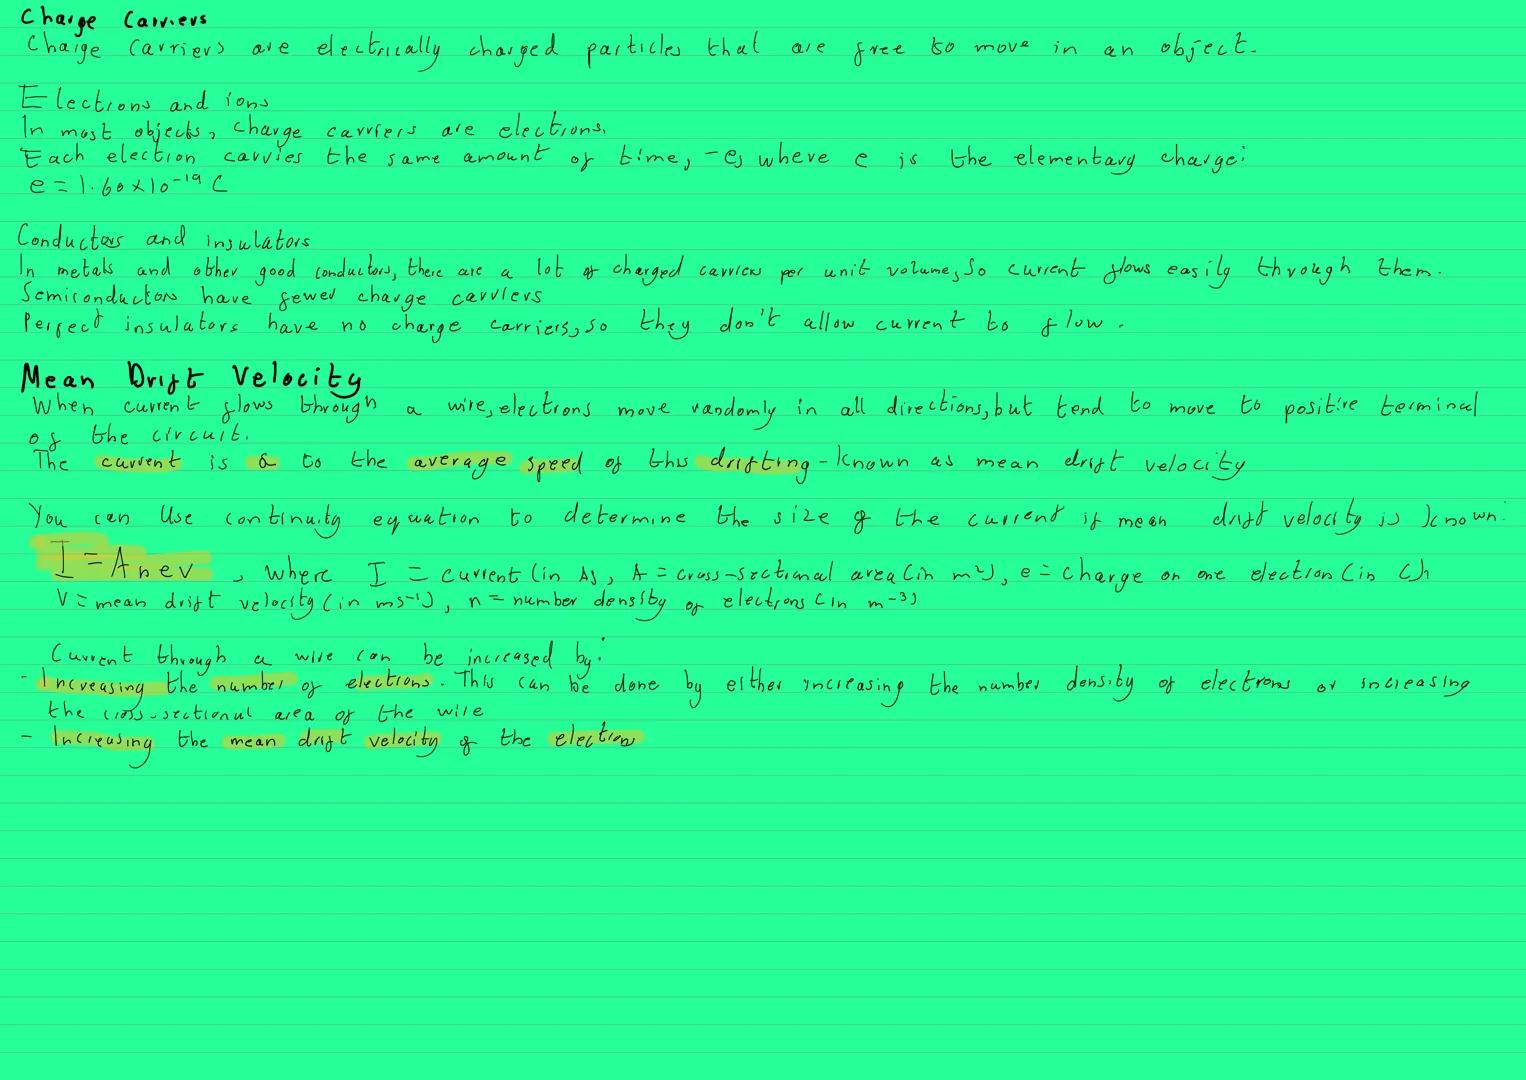 Charge Carriers
Charge Carriers are electrically charged particles that are free to move in an object.
Electrons and ions
In most objects, charge carriers are electrons.
Each electron carries the same amount of time, -e, where e is the elementary charge:
e = 1.60×10⁻¹⁹ C
Conductors and insulators
In metals and other good conductors, there are a lot of charged carriers per unit volume, so current flows easily through them.
Semiconductors have fewer charge carriers
Perfect insulators have no charge carriers, so they don't allow current to flow.
Mean Drift Velocity
When current flows through a wire, electrons move randomly in all directions, but tend to move to positive terminal
of the circuit.
The current is α to the average speed of this drifting - known as mean drift velocity
You can use continuity equation to determine the size of the current if mean drift velocity is known:
I = Anev, where I = current (in A), A = cross-sectional area (in m²), e = charge on one electron (in C),
V = mean drift velocity (in ms⁻¹), n = number density of electrons (in m⁻³)
Current through a wire can be increased by:
- Increasing the number of electrons. This can be done by either increasing the number density of electrons or increasing
the cross-sectional area of the wire
- Increasing the mean drift velocity of the electrons